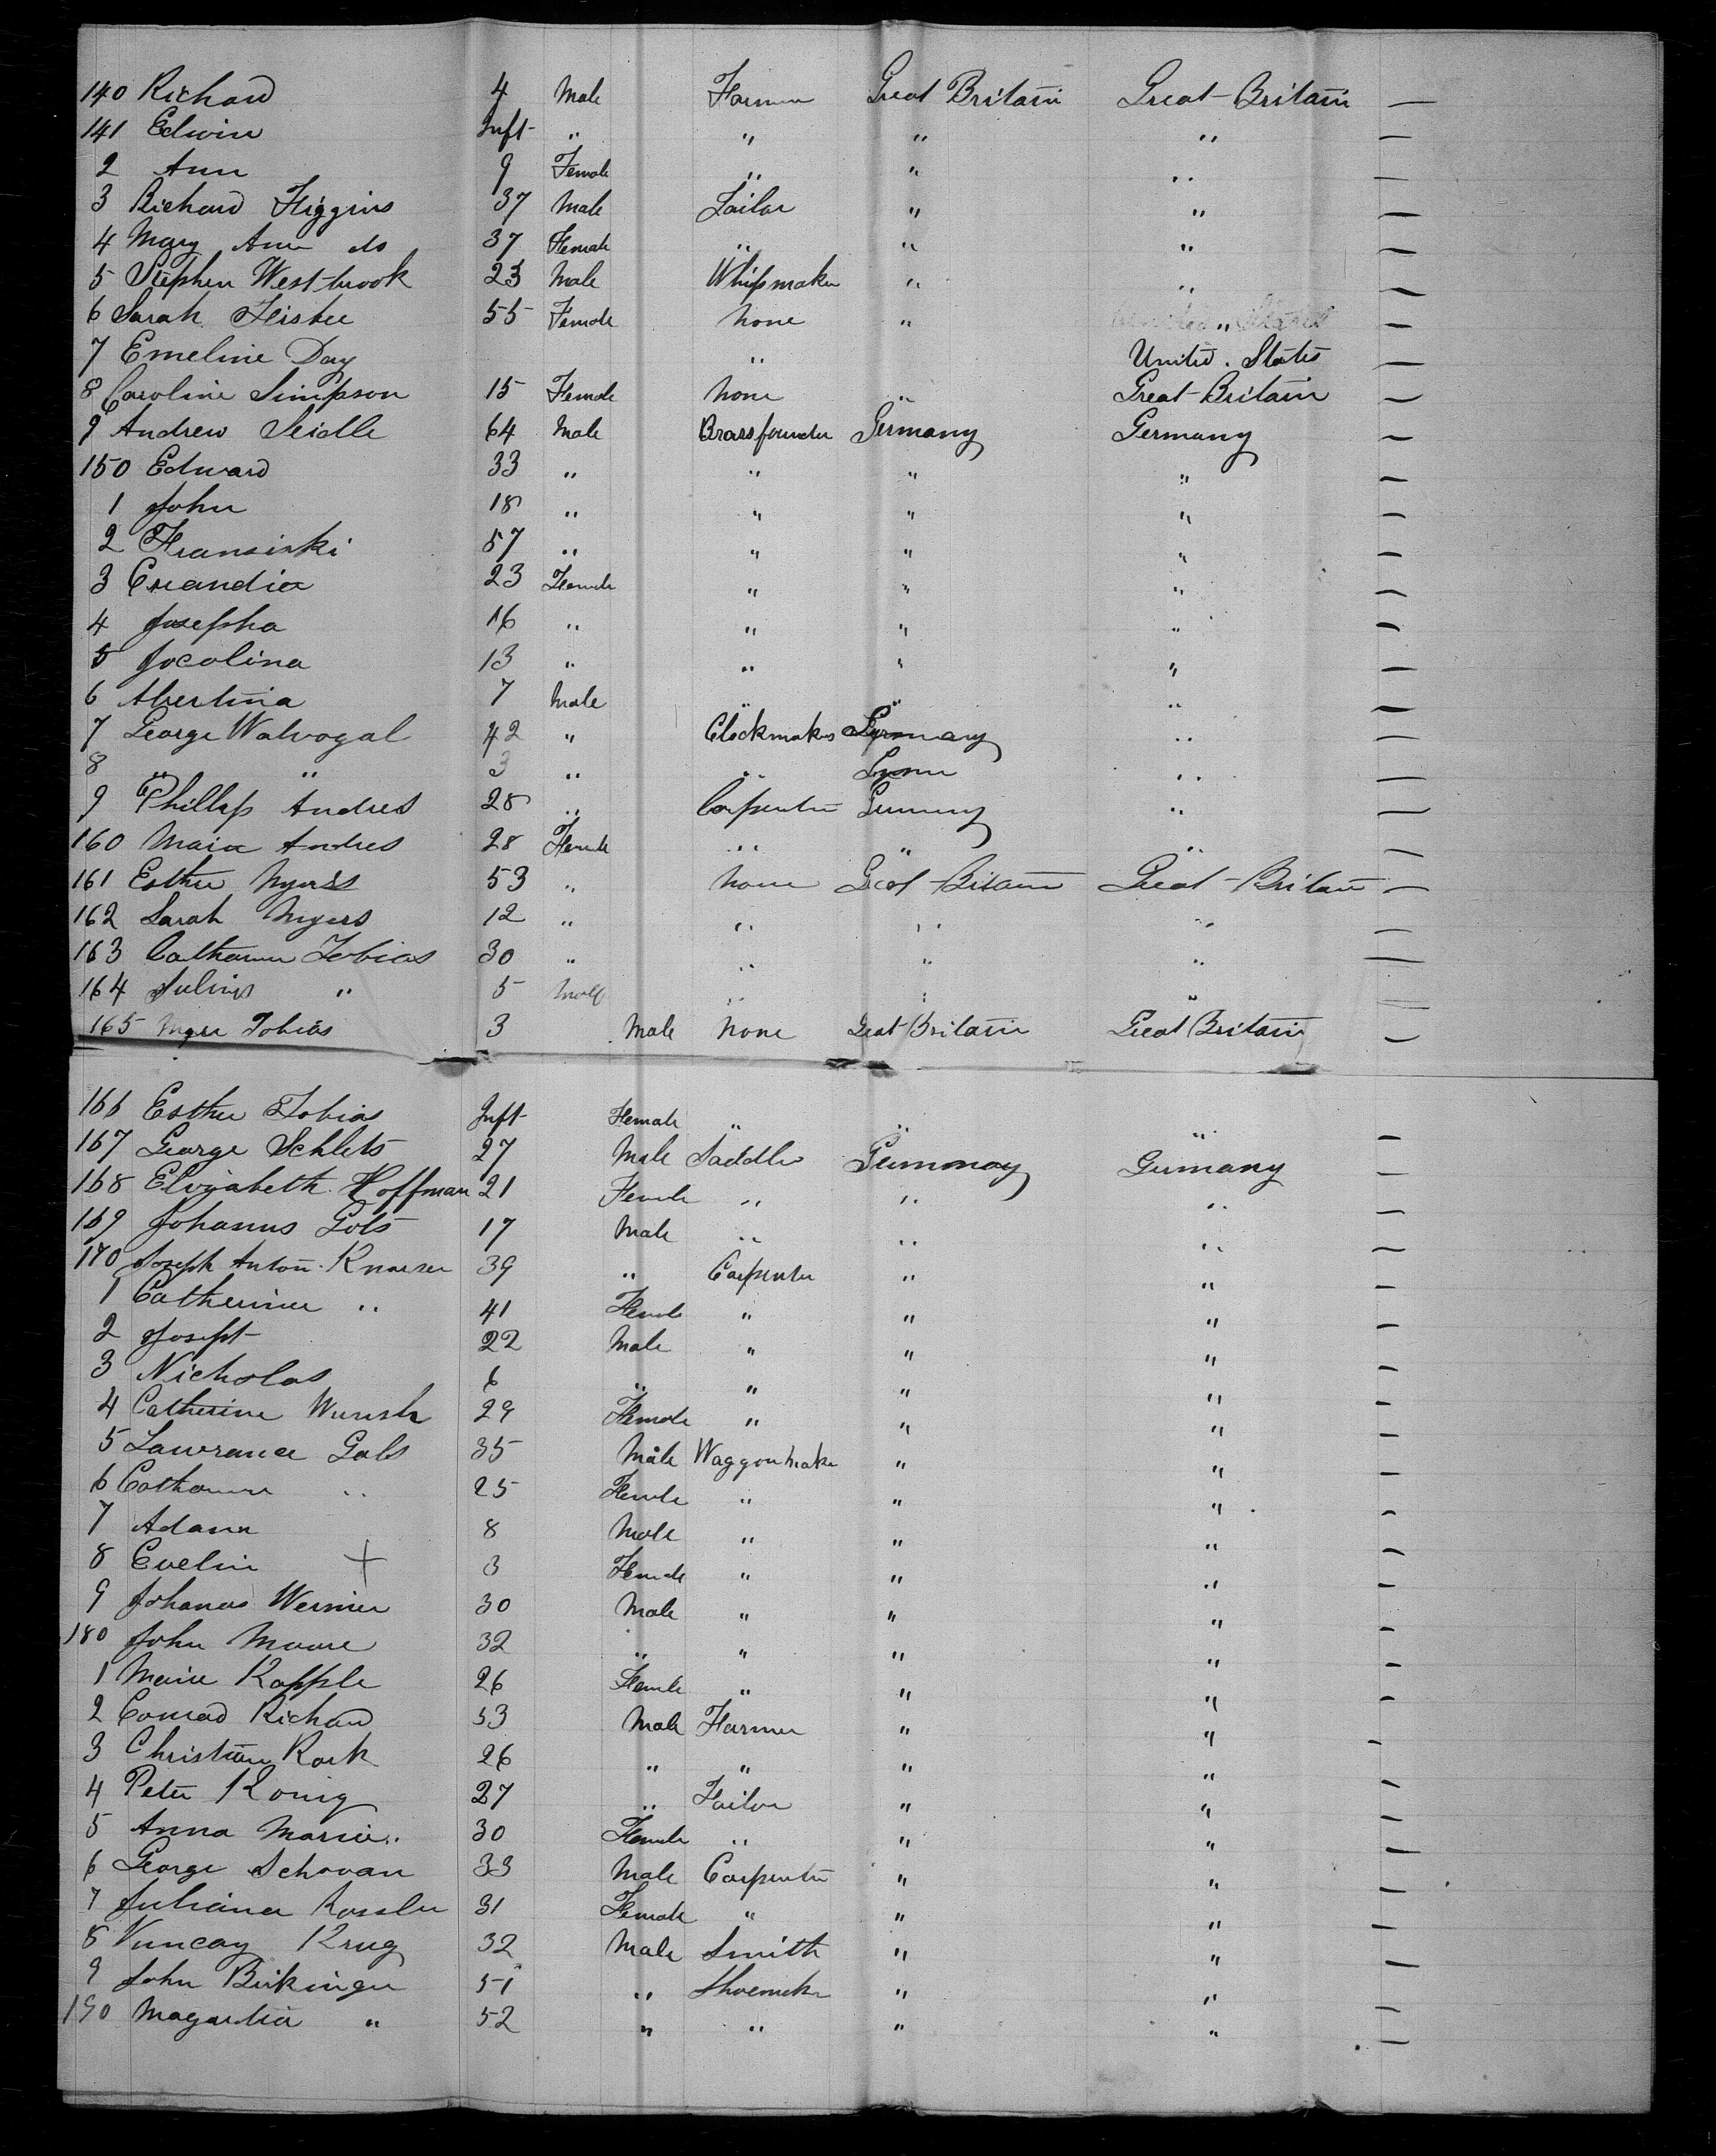 140 Richard 4 Male Farmer Great Britain Great Britain —
141 Edwin Inft " " " " —
2 Ann 9 Female " " " —
3 Richard Higgins 37 Male Tailor " " —
4 Mary Ann do 37 Female " " " —
5 Stephen Westbrook 23 Male Whipmaker " " —
6 Sarah Fisher 55 Female None " " —
7 Emeline Day " United States —
8 Caroline Simpson 15 Female None " Great Britain —
9 Andrew Seidle 64 Male Brassfounder Germany Germany —
150 Edward 33 " " " " —
1 John 18 " " " " —
2 Fransiski 57 " " " " —
3 23 Female " " " —
4 Josepha 16 " " " " —
5 Jocolina 13 " " " " —
6 Abertina 7 Male " " " —
7 George Walvogal 42 " Clockmaker Germany " —
8 " " 3 " " " —
9 Phillip Andres 28 " Carpenter Germany " —
160 Maia Andres 28 Female " " " —
161 Esther Myers 53 " None Great Britain Great Britain —
162 Sarah Myers 12 " " " " —
163 Catharine Tobias 30 " " " " —
164 Julius " 5 Male " " " —
165 Tobias 3 Male None Great Britain Great Britain —
166 Esther Tobias Inft Female " " " —
167 George Schlets 27 Male Saddler Germany Germany —
168 Elizabeth Hoffman 21 Female " " " —
169 Johanus Gols 17 Male " " " —
170 Joseph Anton 39 " Carpenter " " —
1 Catherine " 41 Female " " " —
2 Joseph 22 Male " " " —
3 Nicholas 6 " " " " —
4 Catherine Wunsch 29 Female " " " —
5 Lawrance Gals 35 Male Waggonmaker " " —
6 Catharine " 25 Female " " " —
7 Adam 8 Male " " " —
8 Evelin + 3 Female " " " —
9 Johanas Wernier 30 Male " " " —
180 John Moore 32 " " " " —
1 Marie Kopple 26 Female " " " —
2 Conrad Richard 53 Male Farmer " " —
3 Christian Rork 26 " " " " —
4 Peter Konig 27 " Tailor " " —
5 Anna Marie " 30 Female " " " —
6 George Schovan 33 Male Carpenter " " —
7 Juliana Kossler 31 Female " " " —
8 Krug 32 Male Smith " " —
9 John Birkinger 51 " Shoemaker " " —
190 " 52 " " " " —